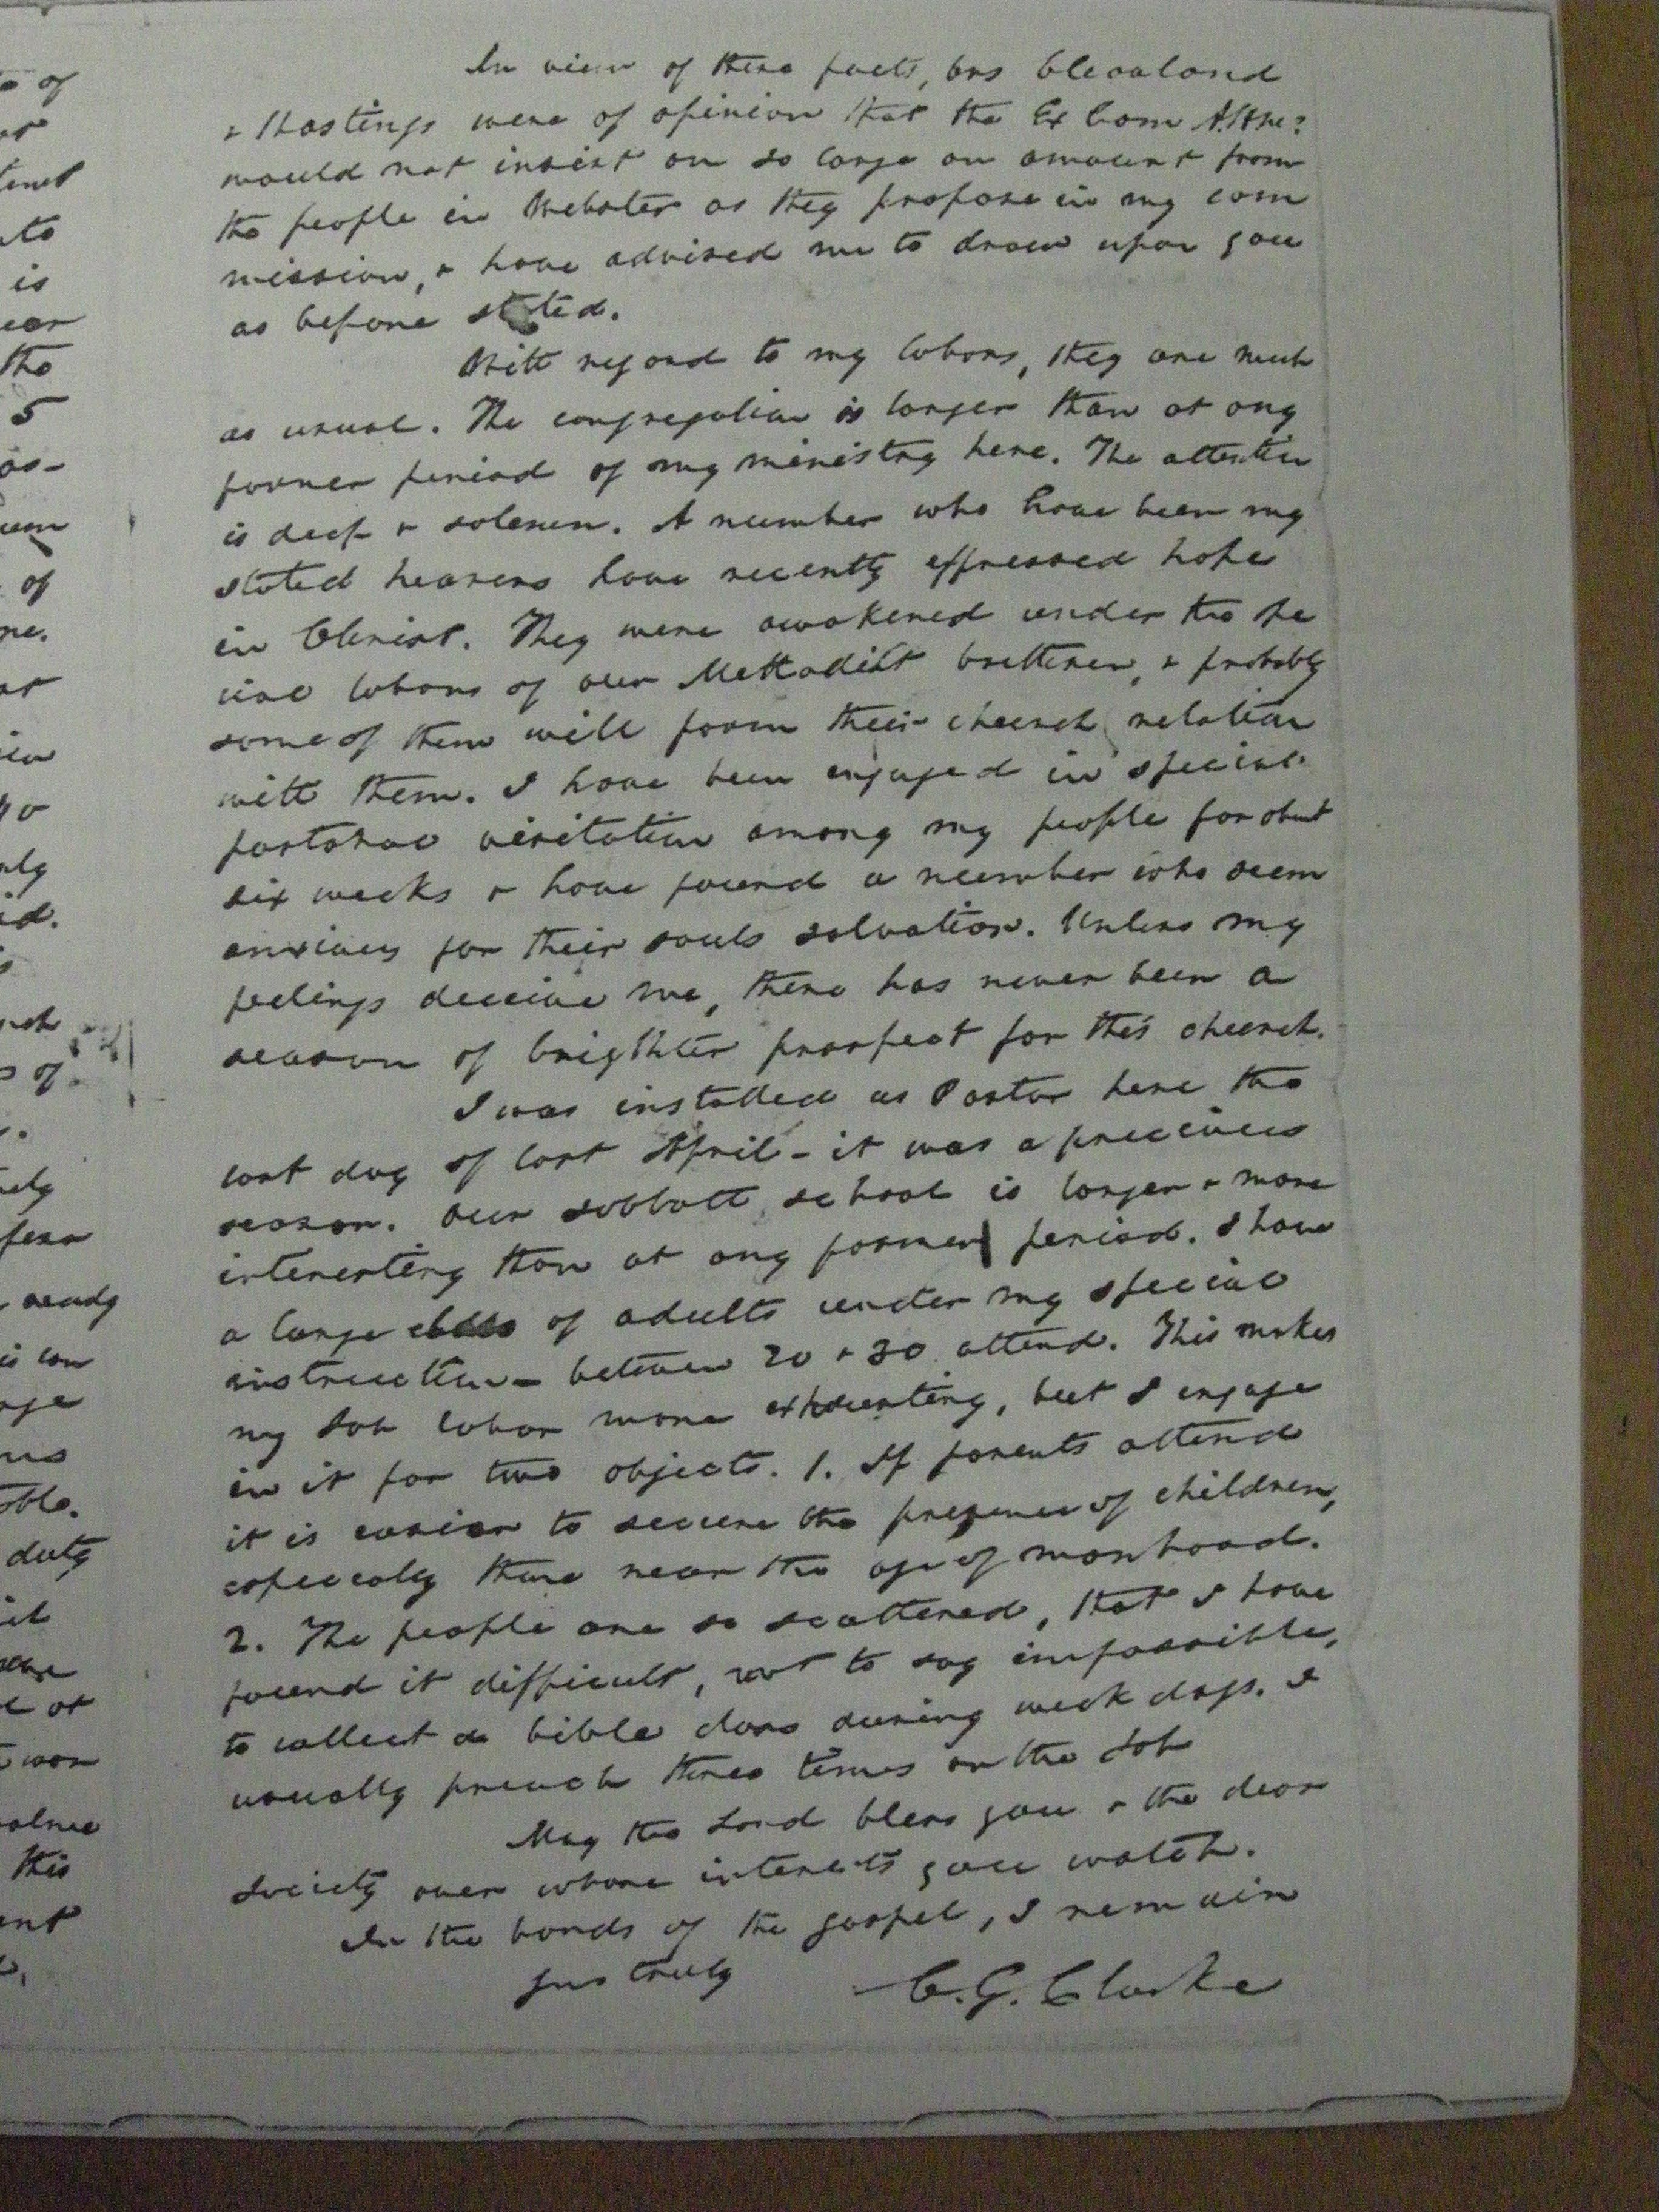 In view of these facts, brs Cleaveland
& Hastings were of opinion that the Ex Com A.H.M.S
would not insist on so large an amount from
the people in Webster as they propose in my com
mission, & have advised me to draw upon you
as before stated.
With regard to my labors, they are much
as usual. The congregation is larger than at any
former period of my ministry here. The attention
is deep & solemn. A number who have been my
stated hearers have recently expressed hope
in Christ. They were awakened under the spe
cial labors of our Methodist brethren, & probably
some of them will form their church relation
with them. I have been engaged in special
pastoral visitation among my people for about
six weeks & have found a number who seem
anxious for their souls salvation. Unless my
feelings deceive me, there has never been a
season of brighter prospect for this church.
I was installed as Pastor here the
last day of last April - it was a precious
season. Our sabbath school is larger & more
interesting than at any former period. I have
a large class of adults under my special
instruction - between 20 & 30 attend. This makes
my Sab labor more exhausting, but I engage
in it for two objects. 1. If parents attend
it is easier to secure the presence of children,
especially those near the age of manhood.
2. The people are so scattered, that I have
found it difficult, not to say impossible,
to collect a bible class during week days. I
usually preach three times on the Sab
May the Lord bless you & the dear
Society over whose interests you watch.
In the bonds of the gospel, I remain
yrs truly C. G. Clarke
of
to
is
the
5
as-
of
of
ready
duty
at
this